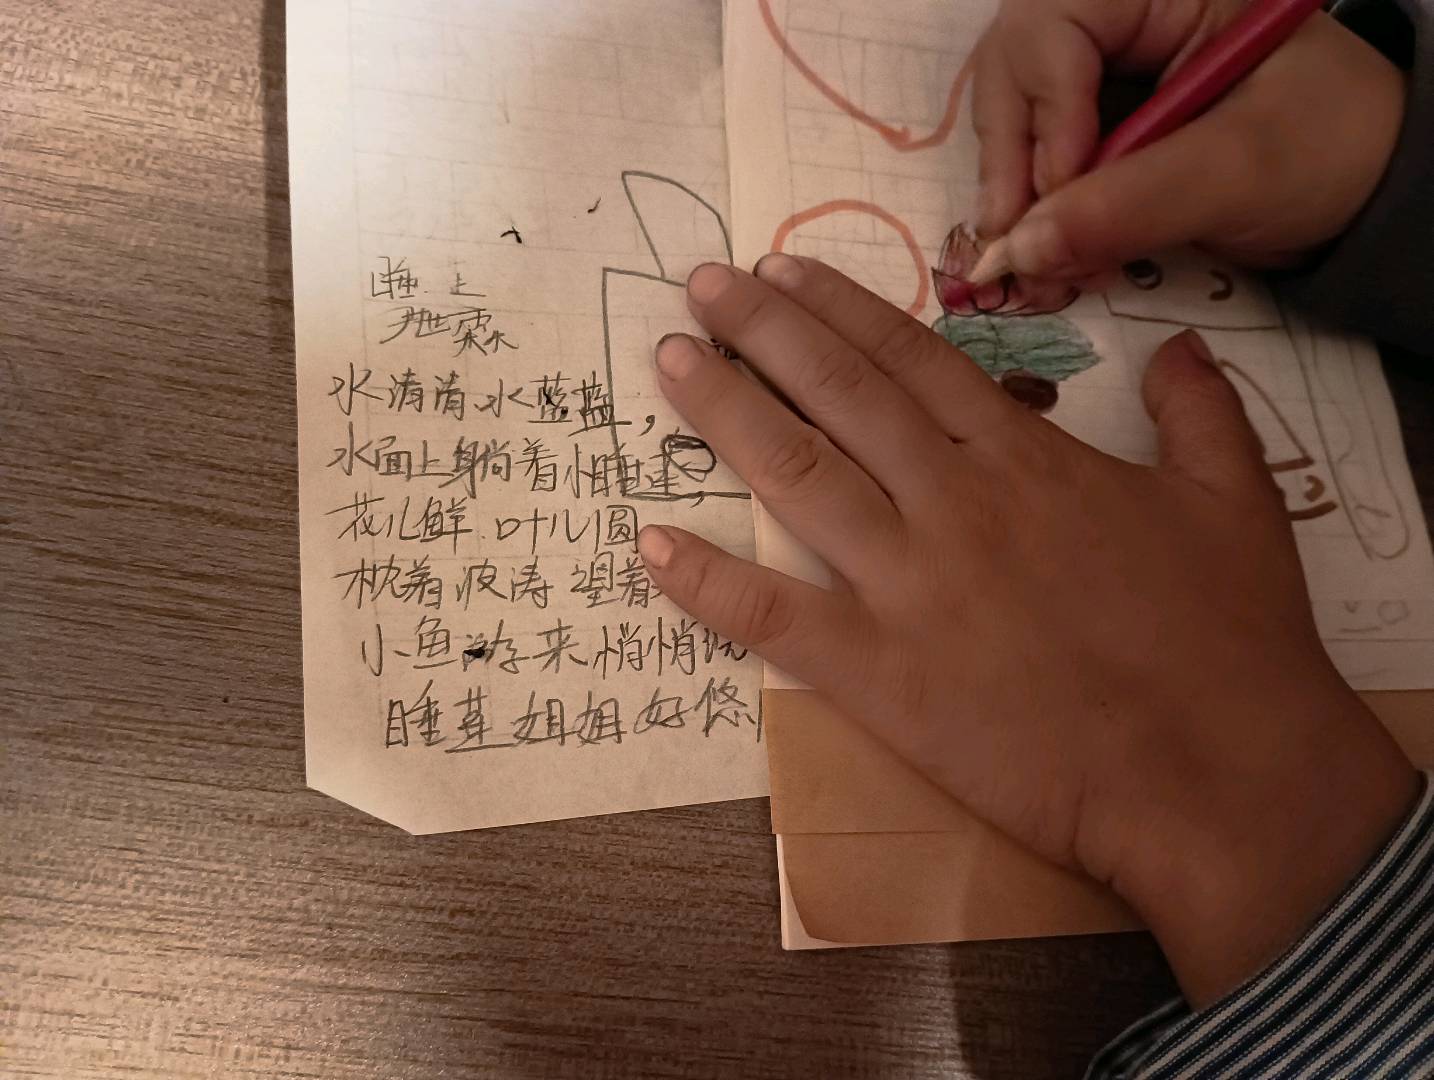 睡莲
尹世霖
水清清,水蓝蓝,
水面上躺着小睡莲,
花儿鲜,叶儿圆
枕着波涛望着
小鱼游来悄悄绕
睡莲姐姐好悠